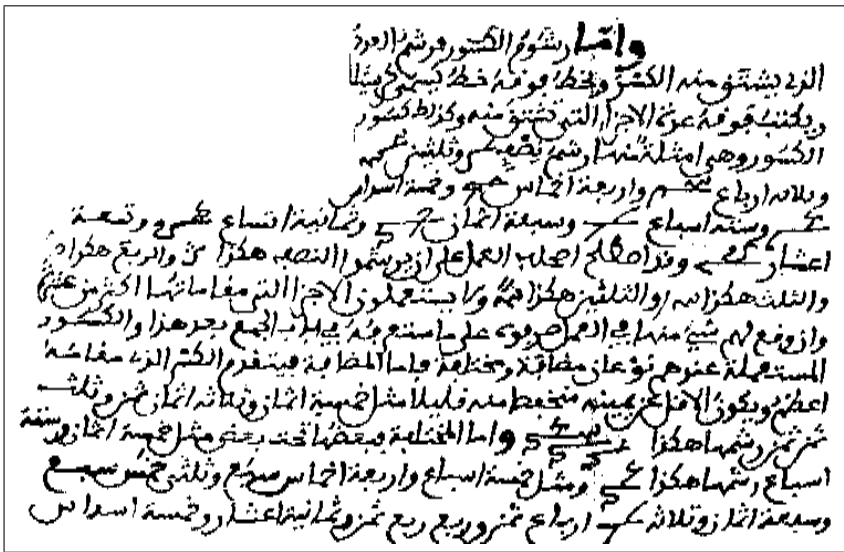 واما رسوم الكسور فرسم العدد
الذي يشتق منه الكسر ويخط فوقه خط
ويكتب فوقه عدة الاجزا التي تشتق منه وكذلك كسور
الكسور وهي امثلة منها رسم نصف وثلثين
وثلاثة ارباع واربعة اخماس وخمسة اسداس
وستة اسباع وسبعة اثمان وثمانية اتساع وتسعة
اعشار وقد اصطلح اصحاب العمل على ان يرسموا النصف هكذا والربع هكذا
والثلث هكذا والثلثين هكذا ولا يستعملون الاجزا التي مقاماتها اكثر من عشرة
وان وقع لهم شيء منها في العمل صرفوه على ما ستعرفه في باب الجمع بعد هذا والكسور
المستعملة عندهم نوعان مضافة ومختلفة فاما المضافة فيتقدم الكسر الذي مقامه
اعظم ويكون الاقل عن يمينه منحط منه قليلا مثل خمسة اثمان وثلاثة اثمان ثمن وثلث
ثمن ثمن رسمها هكذا واما المختلفة فبعضها تحت بعض مثل خمسة اثمان وستة
اسباع رسمها هكذا ومثل خمسة اسباع واربعة اخماس سبع وثلثي خمس سبع
وسبعة اثمان وثلاثة ارباع ثمن وربع ربع ثمن وثمانية اعشار وخمسة اسداس